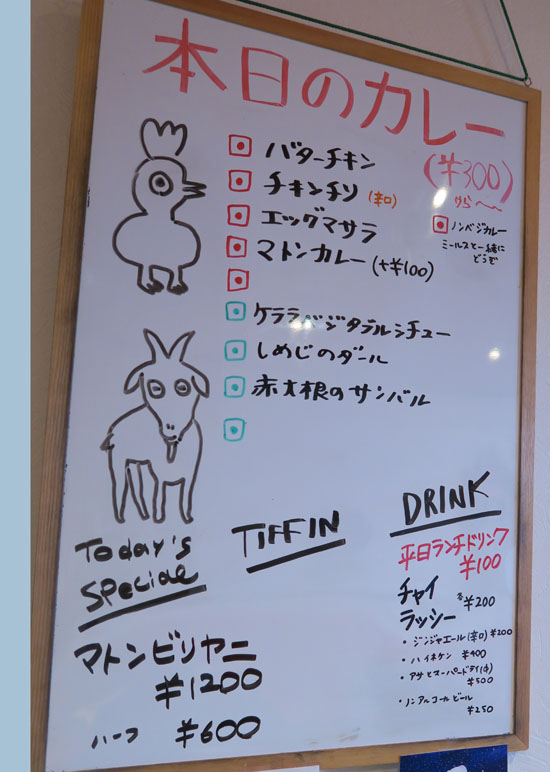 本日のカレー
(¥300)
から〜
バターチキン
チキンチリ (辛口)
エッグマサラ
マトンカレー (+¥100)
ノンベジカレー
ミールスと一緒に
どうぞ
ケララベジタブルシチュー
しめじのダール
赤大根のサンバル
Today's
Special
マトンビリヤニ
¥1200
ハーフ ¥600
TIFFIN
DRINK
平日ランチドリンク
¥100
チャイ
ラッシー
各¥200
・ジンジャエール(辛口) ¥200
・ハイネケン ¥400
・アサヒスーパードライ(小)
¥500
・ノンアルコールビール
¥250